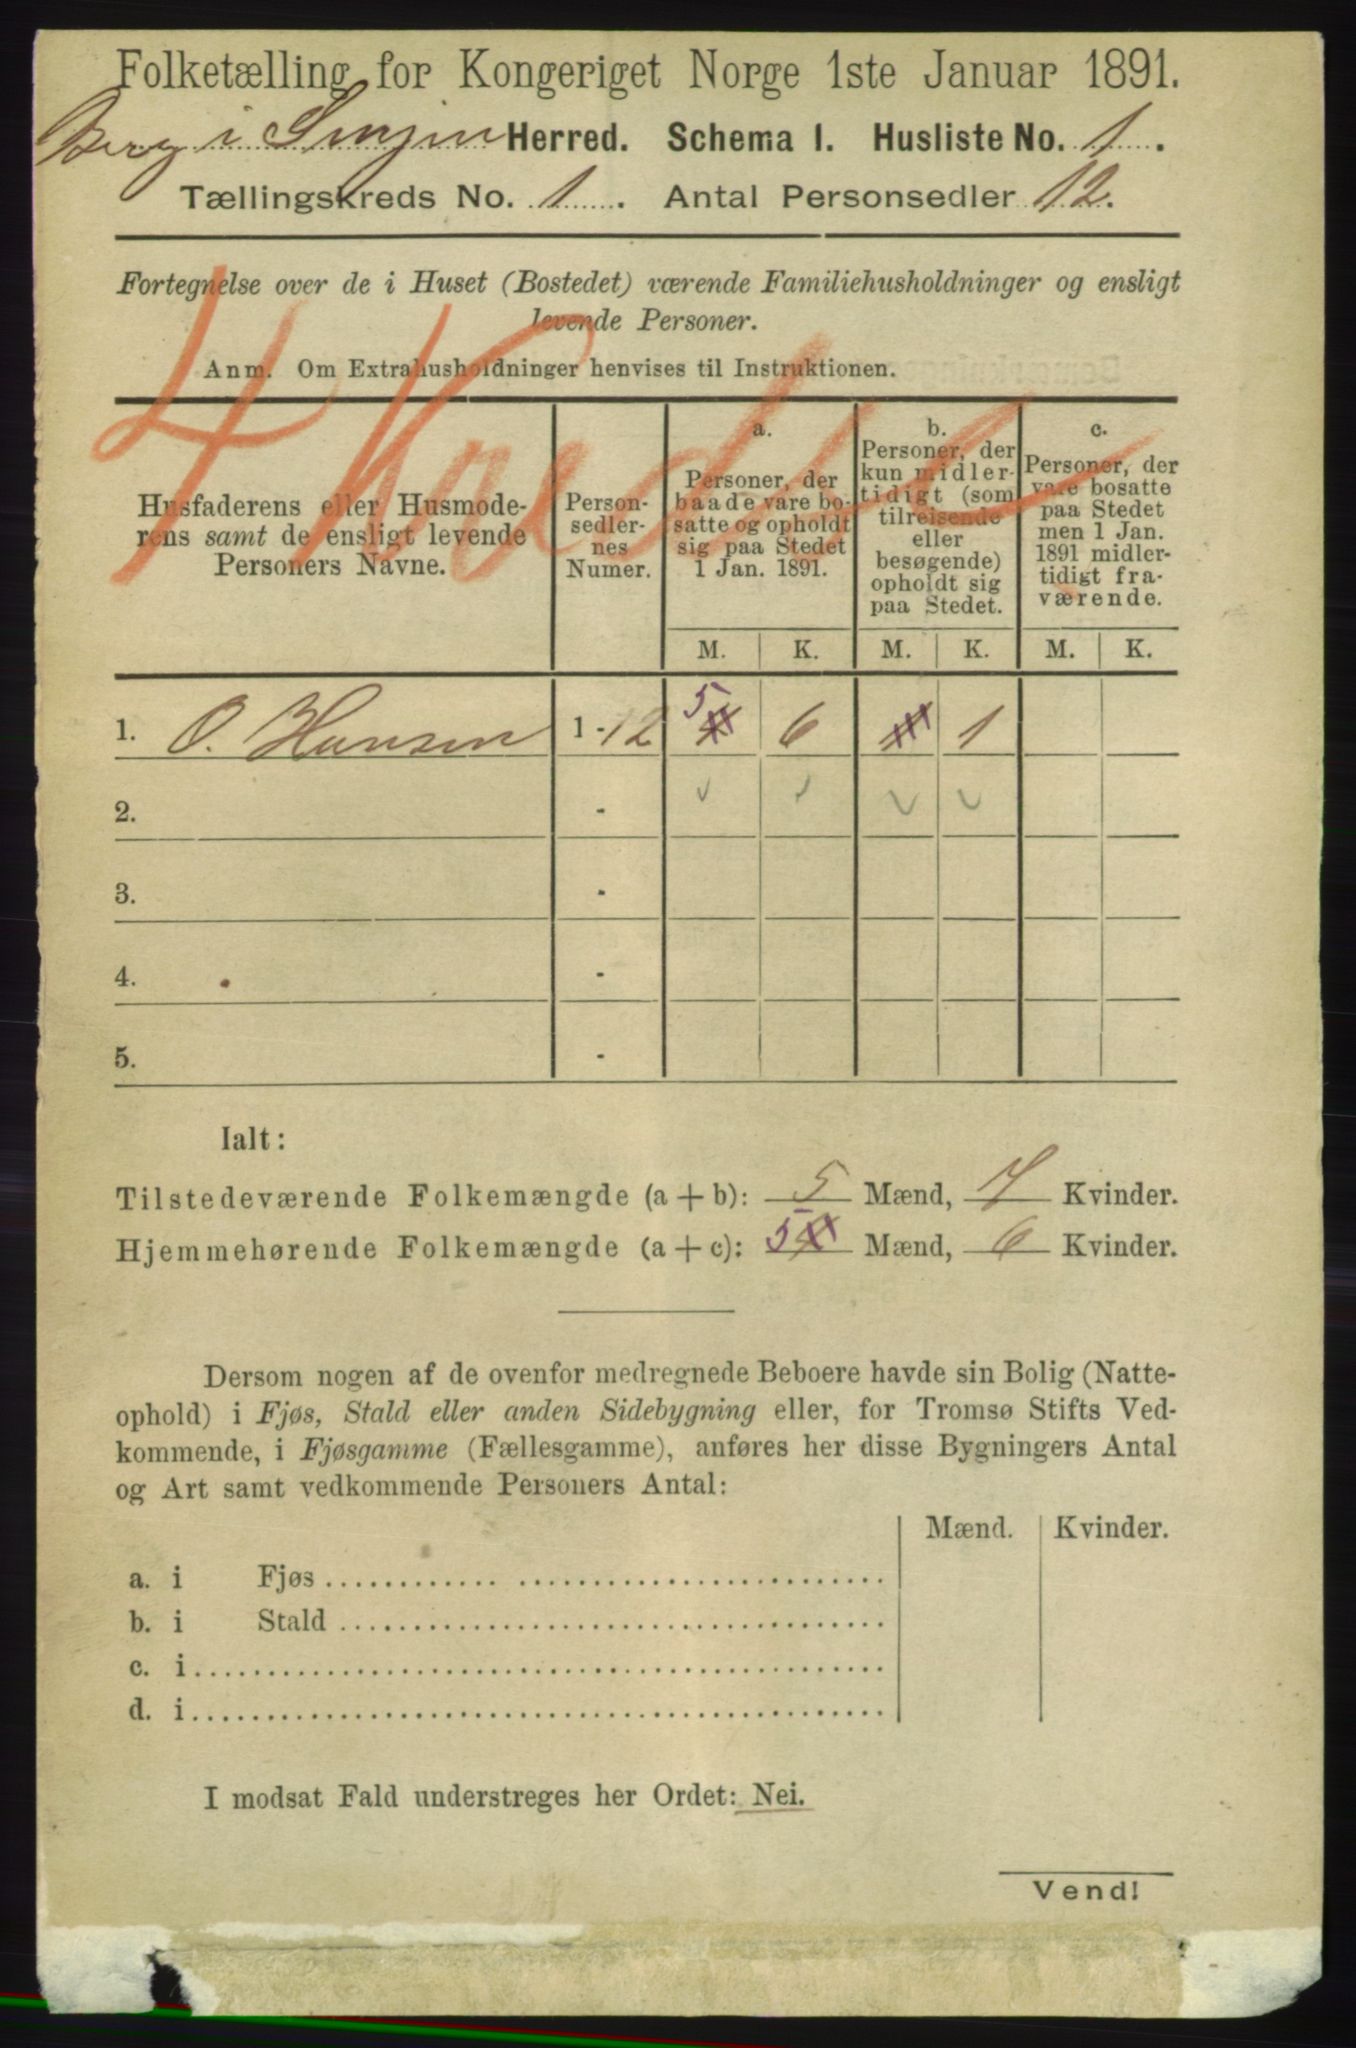 Folketælling for Kongeriget Norge 1ste Januar 1891.
Berg i Senjen Herred. Schema I. Husliste No. 1.
Tællingskreds No. 1. Antal Personsedler 12.
Fortegnelse over de i Huset (Bostedet) værende Familiehusholdninger og ensligt
levende Personer.
Anm. Om Extrahusholdninger henvises til Instruktionen.
4 Kreds
Husfaderens eller Husmode-
rens samt de ensligt levende
Personers Navne.
Person-
sedler-
nes
Numer.
a.
Personer, der
baade vare bo-
satte og opholdt
sig paa Stedet
1 Jan. 1891.
b.
Personer, der
kun midler-
tidigt (som
tilreisende
eller
besøgende)
opholdt sig
paa Stedet.
c.
Personer, der
vare bosatte
paa Stedet
men 1 Jan.
1891 midler-
tidigt fra-
værende.
M. K. M. K. M. K.
1. O. Hansen 1 - 12 5 6 1
2. -
3. -
4. -
5. -
Ialt:
Tilstedeværende Folkemængde (a + b): 5 Mænd, 7 Kvinder.
Hjemmehørende Folkemængde (a + c): 5 Mænd, 6 Kvinder.
Dersom nogen af de ovenfor medregnede Beboere havde sin Bolig (Natte-
ophold) i Fjøs, Stald eller anden Sidebygning eller, for Tromsø Stifts Ved-
kommende, i Fjøsgamme (Fællesgamme), anføres her disse Bygningers Antal
og Art samt vedkommende Personers Antal:
Mænd. Kvinder.
a. i Fjøs
b. i Stald
c. i
d. i
I modsat Fald understreges her Ordet: Nei.
Vend!